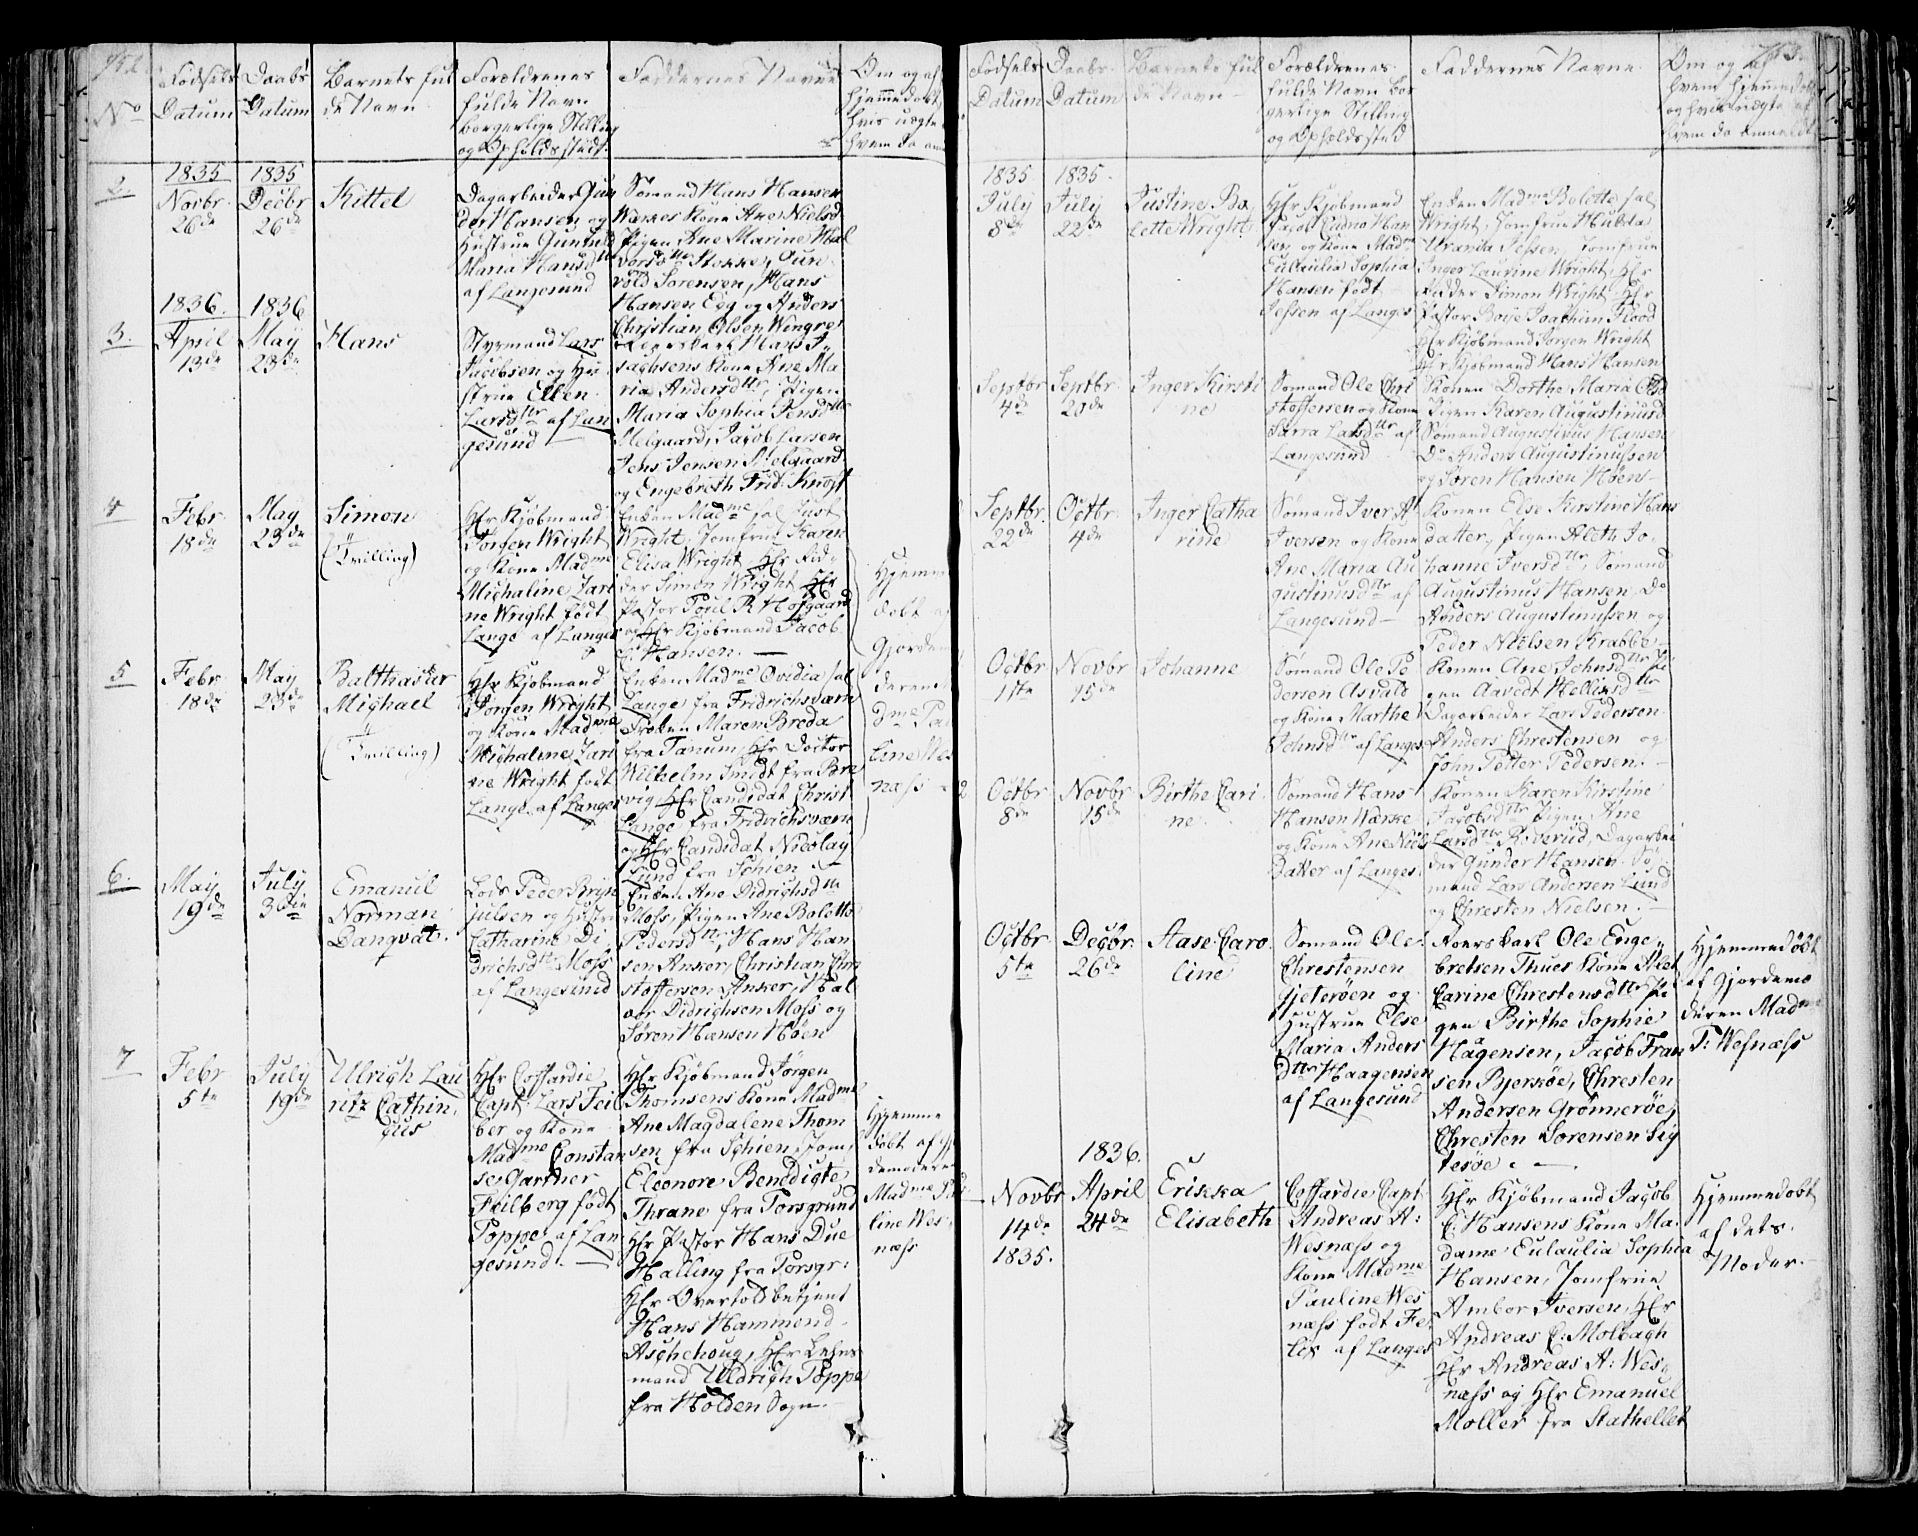 No
Fødsels
Datum
Daabs
Datum
Barnets ful
de Navn
Forældrenes
fulde Navn
borgerlige Stilling
og Opholdssted
Faddernes Navne
Om og af
hjemmedøbt,
hvis uægte
2.
1835
Novbr
26de
1835
Decbr
26de
Kittel
Dagarbeider Gun
der Hansen og
Hustrue Gunild
Maria Hansdtr
af Langesund
Sømand Hans Hansen
Wærkes Kone Ane Nielsd
Pigen Ane Marine Hal
vorsdtr Stokke, Gun
vold Sørensen, Hans
Hansen Egg og Anders
Christian Olsen Wingre
3.
1836.
April
13de
1836
May
23de
Hans
Styrmand Lars
Jacobsen og Hu
strue Ellen
Larsdtr af Lan
gesund
Hans I
sachsens Kone Ane Ma
ria Andersdtr, Pigen
Maria Sophia Jensdtr
Melgaard, Jacob Larsen
Jens Jensen Melgaard
og Engebreth Frid. Knoft
4
Febr
18de
May
23de
Simon
(Tvilling)
Hr Kjøbmand
Jørgen Wright
og Kone Madme
Michaline Zari
ne Wright født
Lange af Langes
Enken Madme sal Just
Wright, Jomfrue Karen
Elisa Wright Hr Rid
der Simon Wright Hr
Pastor Poul R Hofgaard
og Hr Kjøbmand Jacob
E Hansen. —
Hjemme
døbt af
Gjordemo
deren
dme Pau
line Wes
næss
5
Febr
18de
May
23de
Balthasar
Michael
(Tvilling)
Hr Kjøbmand
Jørgen Wright
og Kone Madme
Michaline Zari
ne Wright født
Lange af Langes
Enken Madme Ovidia sal
Lange fra Fridrichsværn
Frøken Maren Breda
fra Tanum, Hr Doctor
Wilhelm Smidt fra Bre
vig, Hr Candidat Christ
Lange fra Fridrichsværn
og Hr Candidat Nicolay
Lund fra Schien
6.
May
19de
July
3die
Emanuel
Norman
Danqvat.
Lods Peder Bryn
julsen og Hustru
Catharine Di
drichsdtr Moss
af Langesund
Enken Ane Didrichsdtr
Moss, Pigen Ane Bolette
Pedersdtr, Hans Han
sen Anker, Christian Chri
stoffersen Anker, Hal
vor Didrichsen Moss og
Søren Hansen Høen
7
Febr
5te
July
19de
Ulrich Lau
ritz Cathin
gius
Hr Coffardie
Capt. Lars Feil
ber og Kone
Madme Constan
se Garther
Feilberg født
Poppe af Lan
gesund. —
Hr Kjøbmand Jørgen
Thomsens Kone Madme
Ane Magdalene Thom
sen fra Schien, Jomf
Eleonore Benedigte
Thrane fra Porsgrund
Hr Pastor Hans Due
Halling fra Porsgr:
Hr Overtoldbetjent
Hans Hammond
Aschehoug, Hr Lehns
mand Uldrich Poppe
fra Holden Sogn. —
Hjemme
døbt af
Madme Pau
line Wes
næss
Fødsels
Datum
Daabs
Datum
Barnets ful
de Navn
Forældrenes
fulde Navn Bor
gerlige Stilling
og Opholdssted
Faddernes Navne
Om og af
hvem hjemmedøbt
og hvis uægte af
hvem da anmeldt
1835
July
8de
1835.
July
22de
Justine Bo
lette Wright
Hr Kjøbmand
Jacob Eudno Han
sen og Kone Madme
Eulaulia Sophia
Hansen født
Jessen af Langes
Enken Madme Bolette sal
Wright, Jomfrue Hulda
Urania Jessen, Jomfrue
Inger Laurine Wright, Hr
Ridder Simon Wright, Hr
Pastor Boije Joachim Flood
Hr Kjøbmand Jørgen Wright
Hr Kjøbmand Hans Hansen
Septbr
4de
Septbr
20de
Inger Kirsti
ne
Sømand Ole Chri
stoffersen og Kone
Sarra Larsdtr af
Langesund
Konen Dorthe Maria Olsd
Pigen Karen Augustinusd
Sømand Augustinus Hansen
Do Anders Augustinussen
og Søren Hansen Høen
Septbr.
22de
Octbr
4de
Inger Catha
rine
Sømand Iver A
Iversen og Kone
Ane Maria Au
gustinusdtr af
Langesund —
Konen Else Kirstine Hans
datter, Pigen Aleth Jo
hanne Iversdtr, Sømand
Augustinus Hansen Do
Anders Augustinussen og
Peder Nielsen Krabbe —
Octbr
1ste
Novbr
15de
Johanne
Sømand Ole Pe
dersen Asvald
og Kone Marthe
Johnsdtr af Langes
Konen Ane Johnsdtr Pi
gen Aavedt Helliksdtr
Dagarbeider Lars Pedersen
Anders Chrestensen og
John Petter Pedersen. —
Octbr
8de
Novbr
15de
Birthe Cari
ne
Sømand Hans
Hansen Wærke
og Kone Ane Niels
Datter af Langes
Konen Karen Kirstine
Jacobsdtr Pigen Ane
Larsdtr Boderud, Dagarbei
der Gunder Hansen Sø
mand Lars Andersen Lund
og Chresten Nielsen. —
Octbr
5te
Decbr.
26de
Aase Caro
line
Sømand Ole
Chrestensen
Gjeterøen og
Hustrue Else
Maria Anders
Dtr Haagensen
af Langesund
Aoerskarl Ole Enge
bretsen Thues Kone Alet
Carine Chrestensdtr Pi
gen Birthe Sophie
Hagensen, Jacob Fran
sen Bjerkøe, Chresten
Andersen Grønnerøe,
Chresten Sørensen Sig
tesøe. —
Hjemmedøbt
af Gjordemo
deren Madme
P: Wesnæss
Novbr
14de
1835.
1836.
April
24de
Erikka
Elisabeth
Coffardie Capt
Andreas A:
Wesnæss og
Kone Madme
Pauline Wes
næss født Fe
lix af Langes
Hr Kjøbmand Jacob
E: Hansens Kone Ma
dame Eulaulia Sophia
Hansen, Jomfrue
Ambor Iversen, Hr
Andreas C: Molbagh
Hr Andreas A: Wes
næss og Hr Emanuel
Møller fra Stathellet
Hjemmedøbt
af dets
Moder. —